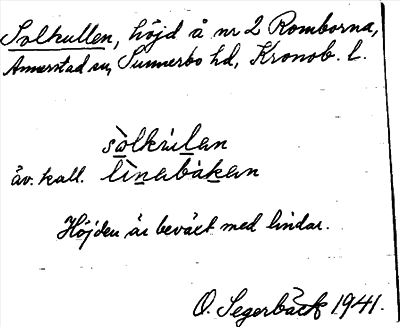 Solkullen, höjd å nr 2 Romborna,
Annerstad sn, Sunnerbo hd, Kronob. l.
sò̱lkùḻan
äv. kall. lìṉabàḵan
Höjden är beväxt med lindar.
O. Segerbäck 1941.